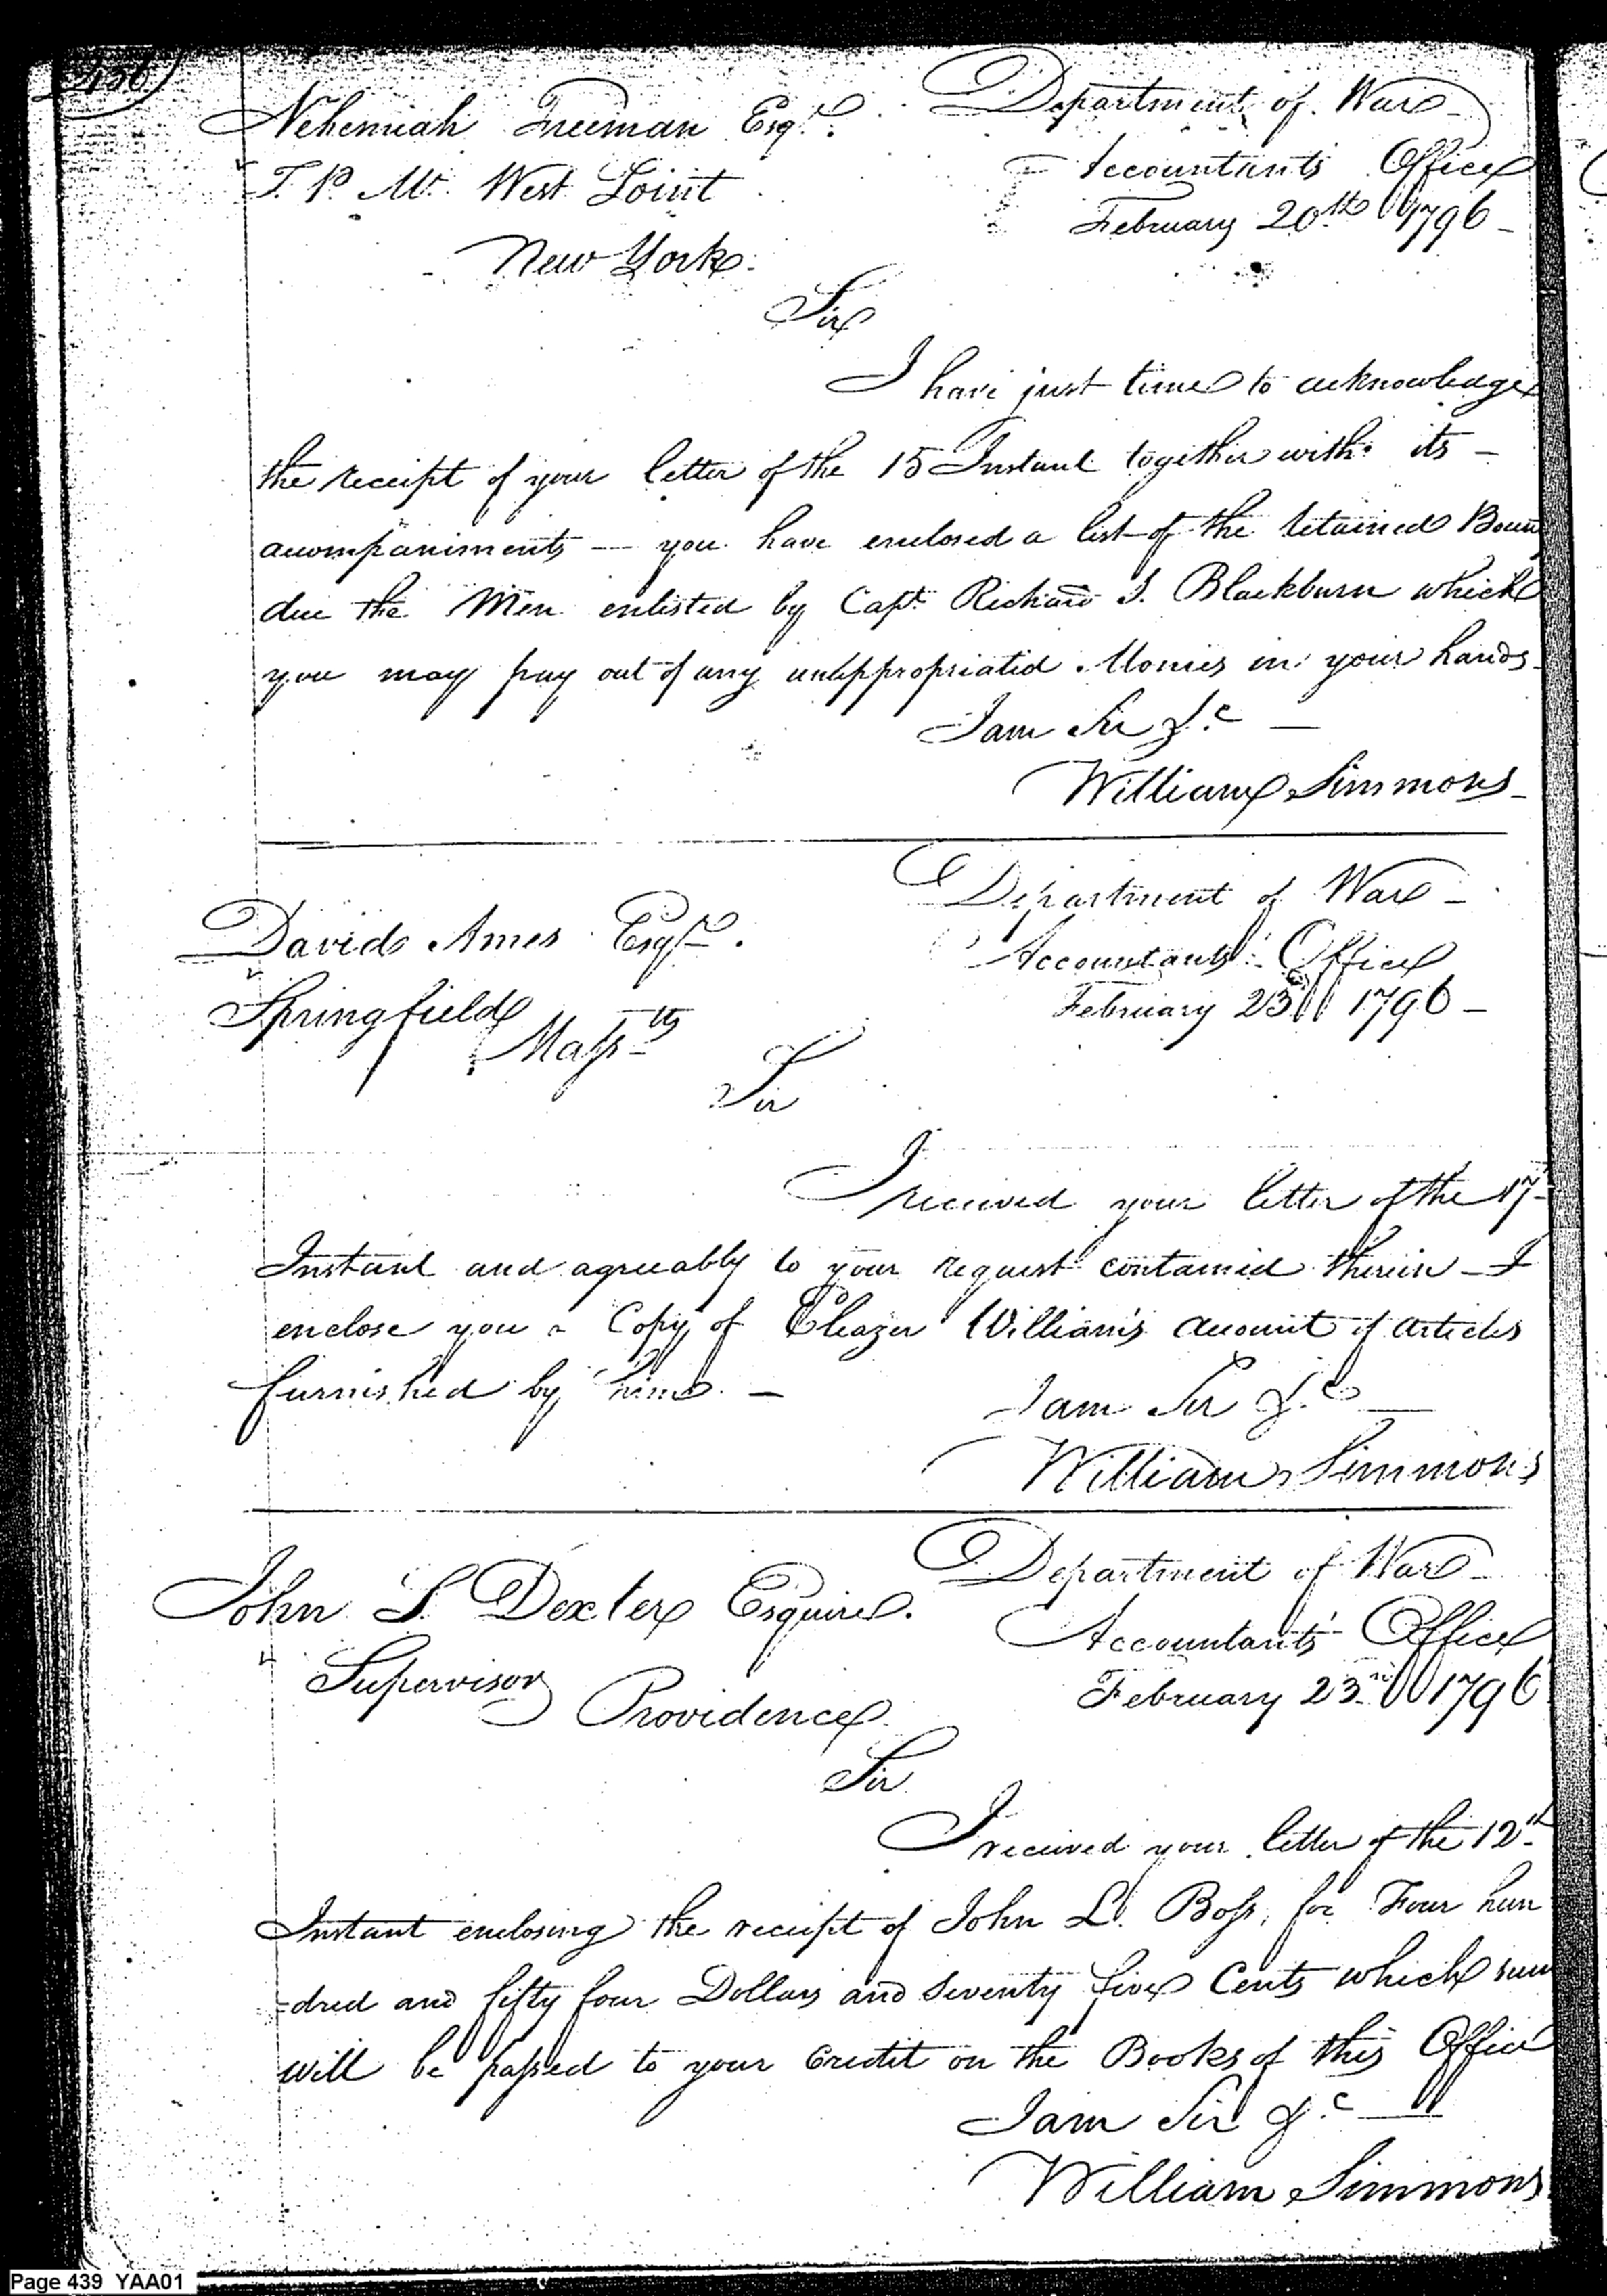 436
Nehemiah Freeman Esqr.
T. P. Mr. West Point
New York.
Department of War
Accountants Office
February 20th 1796
Sir
I have just time to acknowledge
the receipt of your letter of the 15 Instant together with its
acompaniments — you have enclosed a list of the retained Boun
due the Men enlisted by Capt. Richard S. Blackburn which
you may pay out of any unappropriated Monies in your hands
I am Sir &c —
William Simmons
David Ames Esqr.
Springfield
Massts
Department of War
Accountants Office
February 23 1796
Sir
I received your letter of the 17
Instant and agreeably to your request contained therein — I
enclose you a Copy of Eleazer William's account of articles
furnished by him. —
I am Sir &c —
William Simmons
John S. Dexter Esquire.
Supervisor
Providence
Department of War
Accountants' Office
February 23rd 1796
Sir
I received your letter of the 12th
Instant enclosing the receipt of John L. Boss, for Four hun
=dred and fifty four Dollars and Seventy five Cents which sum
will be passed to your Credit on the Books of this Office
I am Sir &c —
William Simmons
Page 439 YAA01